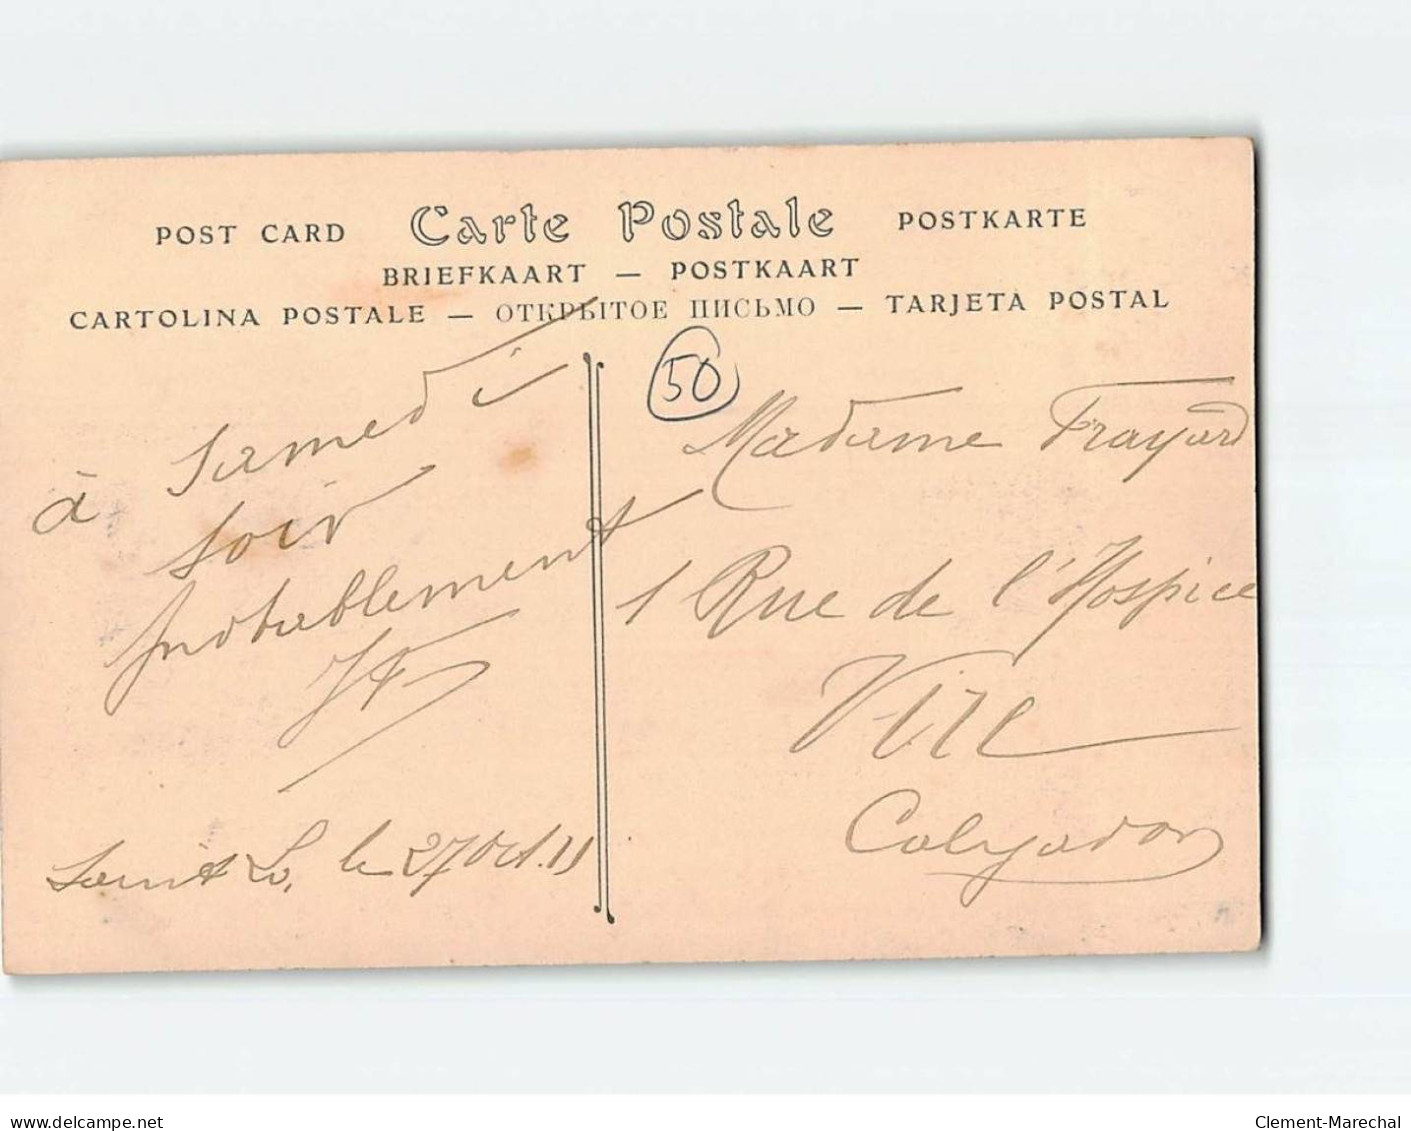 POST CARD Carte Postale POSTKARTE
BRIEFKAART — POSTKAART
CARTOLINA POSTALE — ОТКРЫТОЕ ПИСЬМО — TARJETA POSTAL
50
à Samedi
Soir
probablement
Saint Lo, le 27 Oct. 11
Madame Frayard
1 Rue de l'Hospice
Vire
Calvados
www.delcampe.net
Clement-Marechal